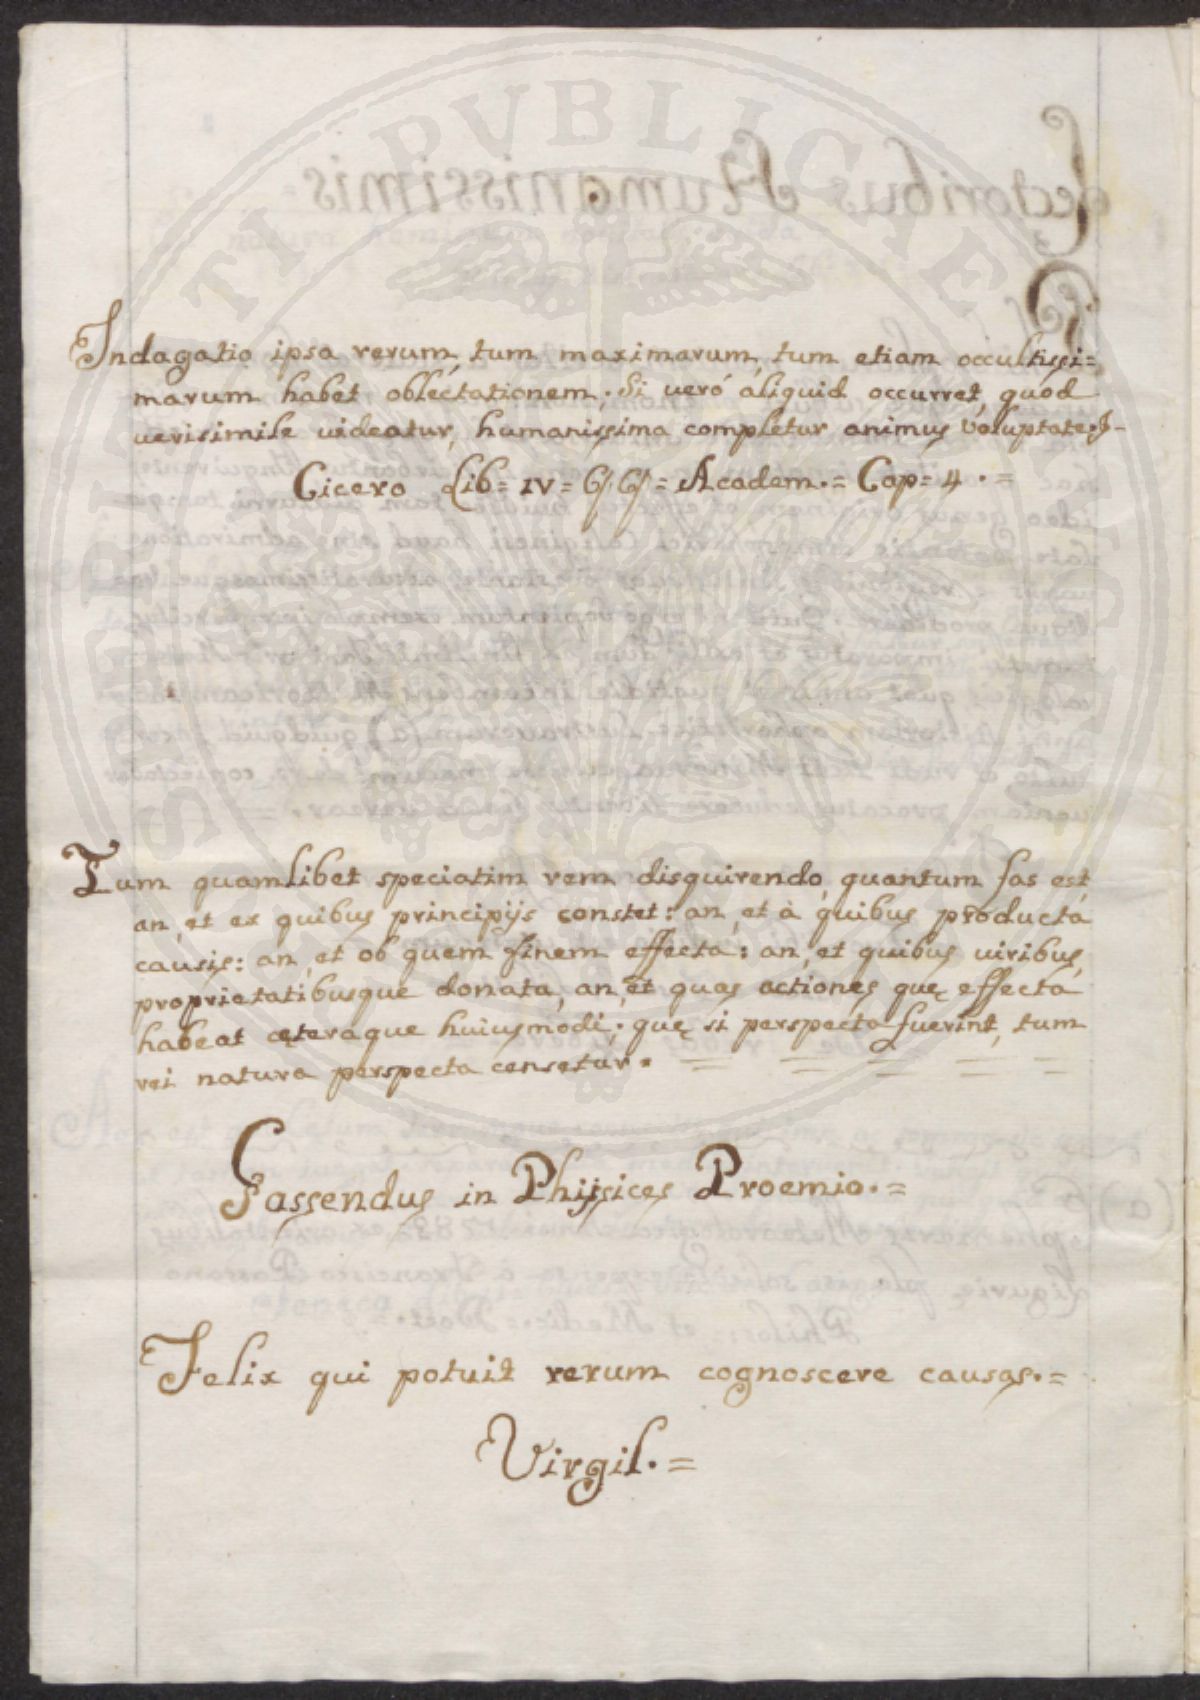 Indagatio ipsa rerum, tum maximarum, tum etiam occultissi=
marum habet oblectationem. Si veró aliquid occurret, quod
verisimile videatur, humanissima completur animus voluptate.
Cicero Lib= IV= = Academ.= Cap= 4.=
Tum quamlibet speciatim rem disquirendo, quantum fas est,
an, et ex quibus principijs constet: an, et à quibus producta
causis: an, et ob quem finem effecta: an, et quibus viribus,
proprietatibusque donata, an, et quas actiones, quę effecta
habeat cęteraque huiusmodi; quę si perspecta fuerint, tum
rei natura perspecta censetur.
Gassendus in Phijsices Proemio.=
Felix qui potuit rerum cognoscere causas.=
Virgil.=